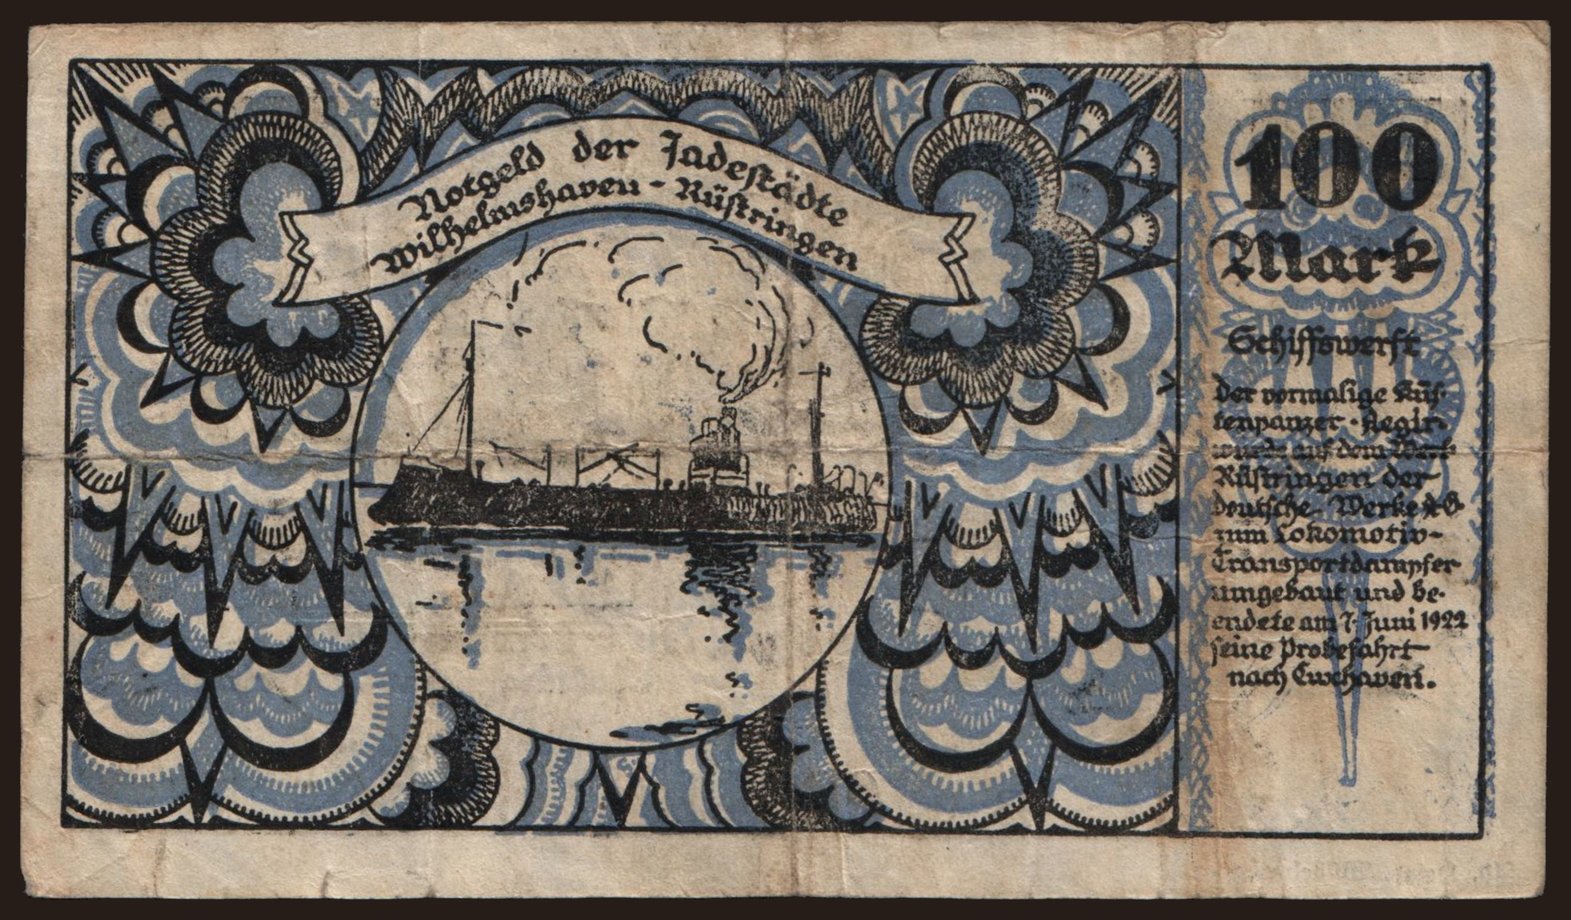 Notgeld der Jadestädte
Wilhelmshaven - Rüstringen
100
Mark
Schiffswerft
Der vormalige Küs-
tenpanzer „Aegir“
wurde auf dem Werk
Rüstringen der
Deutsche- Werke A.G
zum Lokomotiv-
Transportdampfer
umgebaut und be-
endete am 7. Juni 1922
seine Probefahrt
nach Cuxhaven.